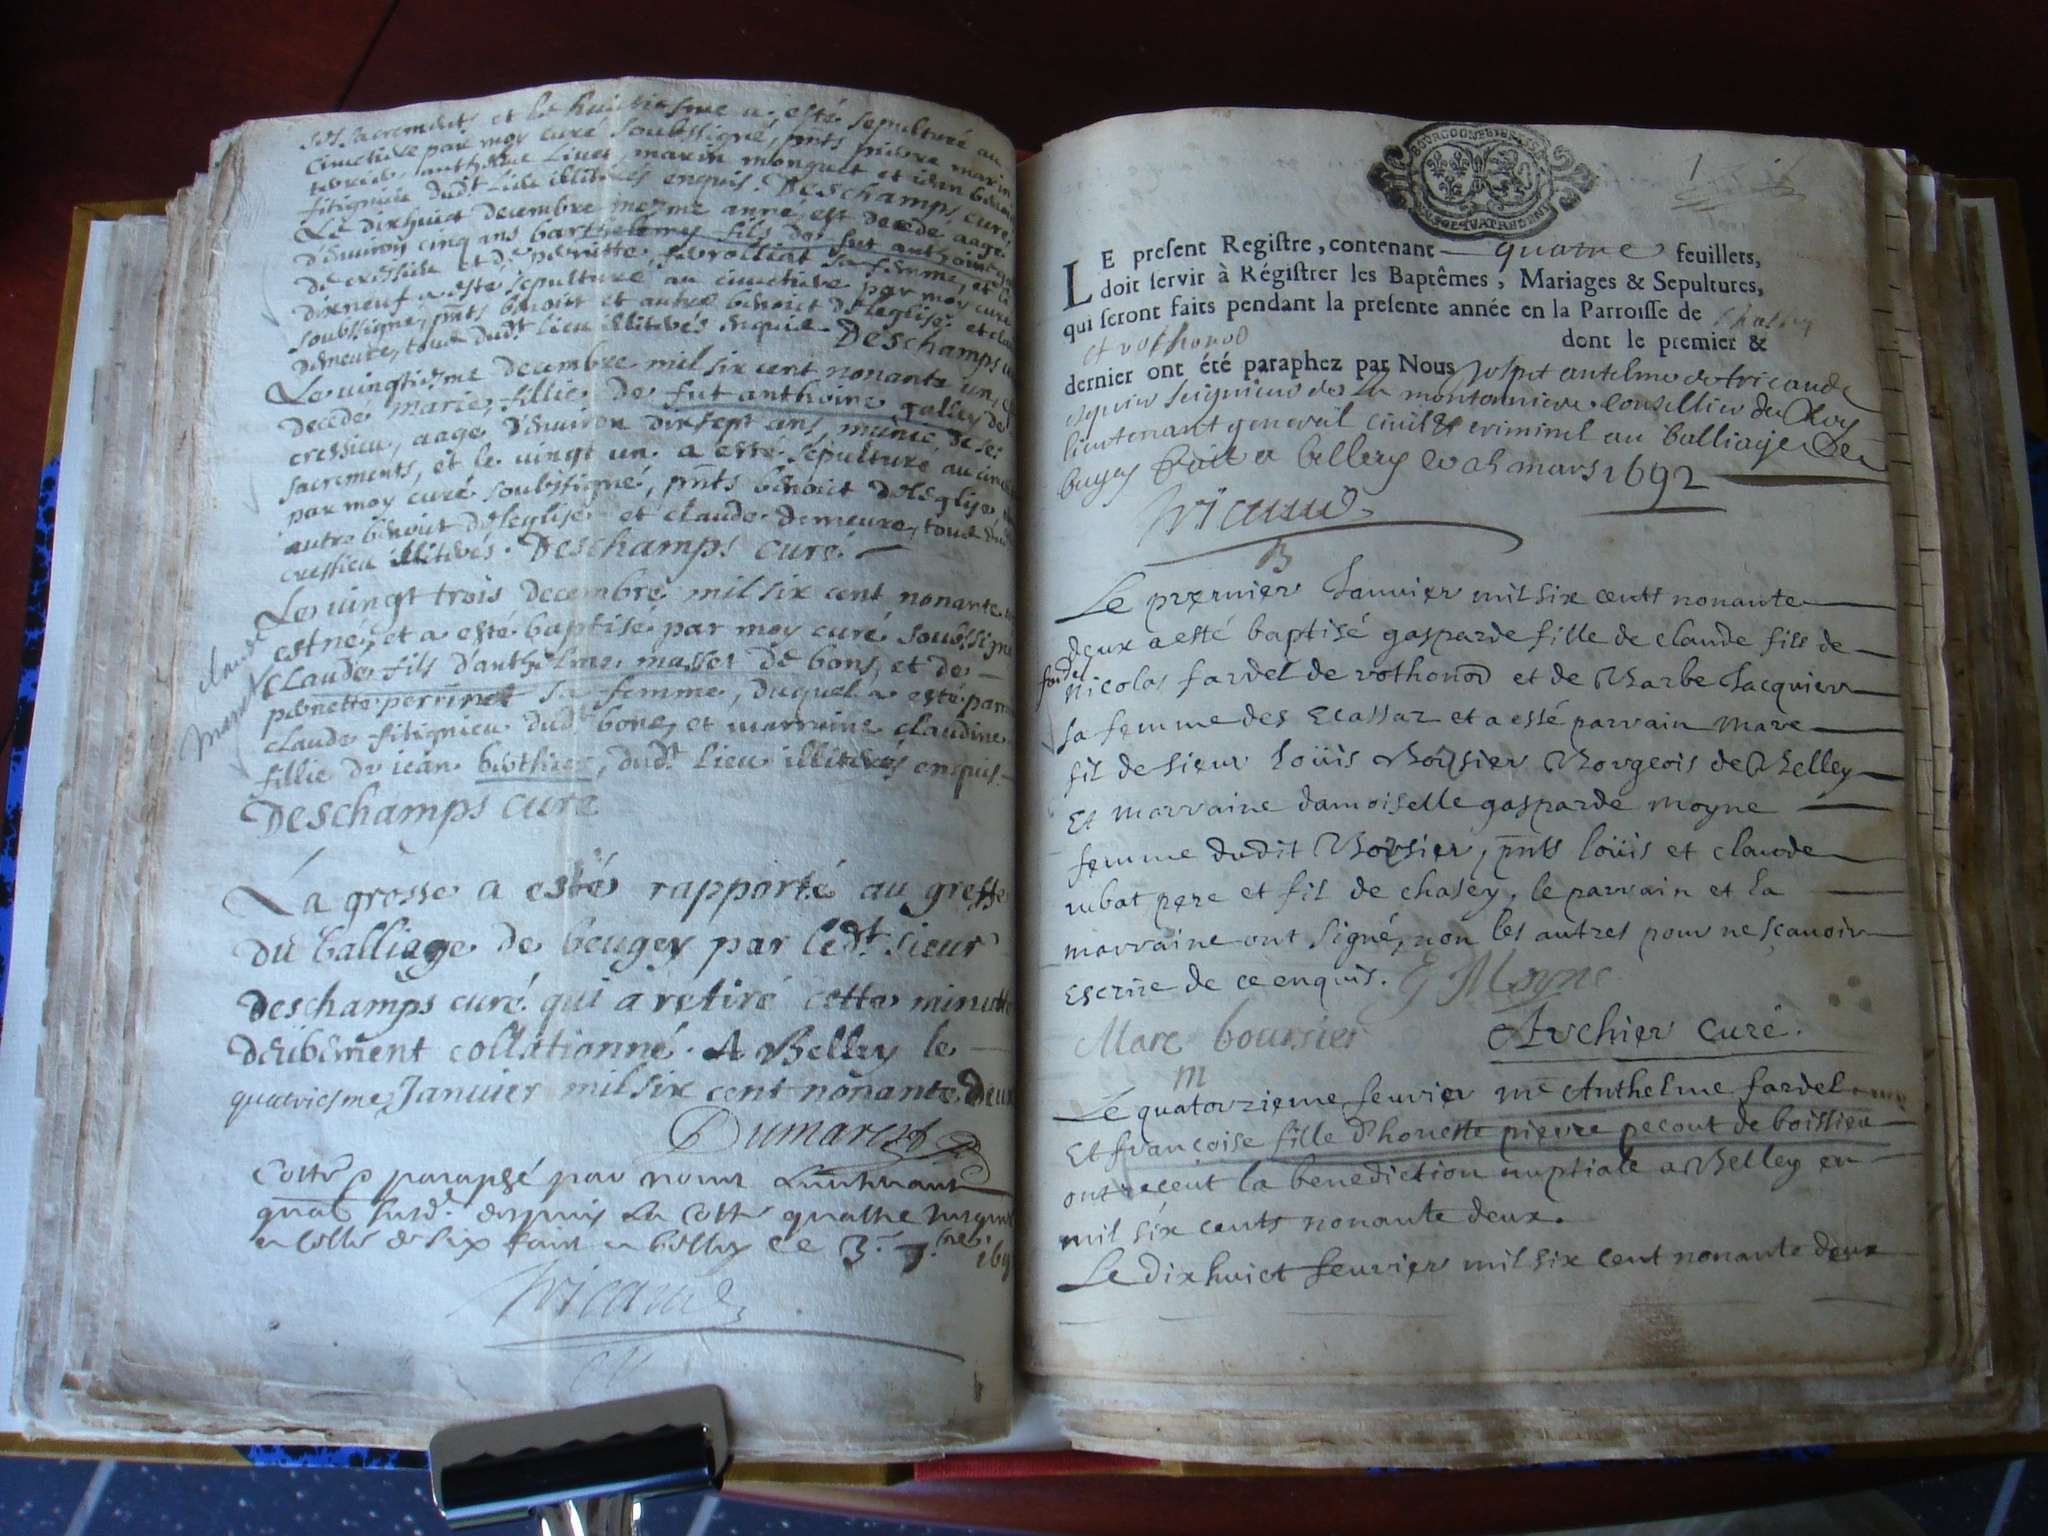 sacrements et le huictiesme a esté sepulturé au
cimetiere par moy curé soubssigné, pnts pierre marin
anthelme marin monguet et
fitignieu dudt lieu illiterés enquis. Deschamps curé
Le dixhuict decembre mesme anné, est decedé aagé
d'environ cinq ans barthelemy fils de fut anthoine
de cressieu et de sa femme, et le
dixneuf a esté sepulturé au cimetiere par moy curé
soubssigné, pnts benoict et autre benoict deleglise et
demeure, tous dudt lieu illiterés enquis Deschamps
Le vingtiesme decembre mil six cent nonante un,
decedé marie, fillie de fut anthoine galley de
cressieu, aage d'environ dixsept ans, munie de ses
sacrements, et le vingt un a esté sepulturé au
par moy curé soubssigné, pnts benoict deleglise
autre benoict deleglise et claude demeure, tous
cressieu illiterés. Deschamps curé
Le vingt trois decembre mil six cent nonante
est né, et a esté baptisé par moy curé soubssigné
claude masset
claude fils d'anthelme masset de bons, et de
pernette perrinet sa femme, duquel a esté
claude fitignieu dudt bons, et marraine claudine
fillie de iean berthier, dudt lieu illiterés enquis
Deschamps curé
La grosse a esté rapporté au greffe
du balliage de beugey par ledt sieur
deschamps curé qui a retiré cette minutte
deubement collationné. A Belley le
quatriesme Janvier mil six cent nonante deux
Dumarest
Cotté & paraphé par nous Lieutenant
gnal susd. depuis la cotte quattre
celle de six fait a belley ce 3.
Tricaud
1
BOURGOGNE BRESSE
LE present Registre, contenant quatre feuillets,
doit servir à Régistrer les Baptêmes, Mariages & Sepultures,
qui seront faits pendant la presente année en la Parroisse de chasey
et rothonod dont le premier &
dernier ont été paraphez par Nous Jospt antelme de tricaude
esquier seigneur de La montanniere conseillier du Roy
lieutenant general civil & criminel au balliage de
bugey fait a belley ce mars 1692
Tricaud
B
Le premier Janvier mil six cents nonante
deux a esté baptisé gasparde fille de claude fils de
fardel
Nicolas fardel de rothonod et de Barbe Jacquier
sa femme des Ecassaz et a esté parrain Marc
fil de sieur Loüis Borsier Borgeois de Belley
Et marraine damoiselle gasparde moyne
femme dudit Borsier, pnts loüis et claude
rubat pere et fil de chasey, le parrain et la
marraine ont signé, non les autres pour ne sçavoir
Escrire de ce enquis. G Moyne
Marc boursier Archier curé.
m
Le quatorzieme fevrier me Anthelme fardel
Et francoise fille d'honeste pierre pecout de boissieu
ont receut la benediction nuptiale a Belley en
mil six cents nonante deux.
Le dixhuict fevrier mil six cent nonante deux